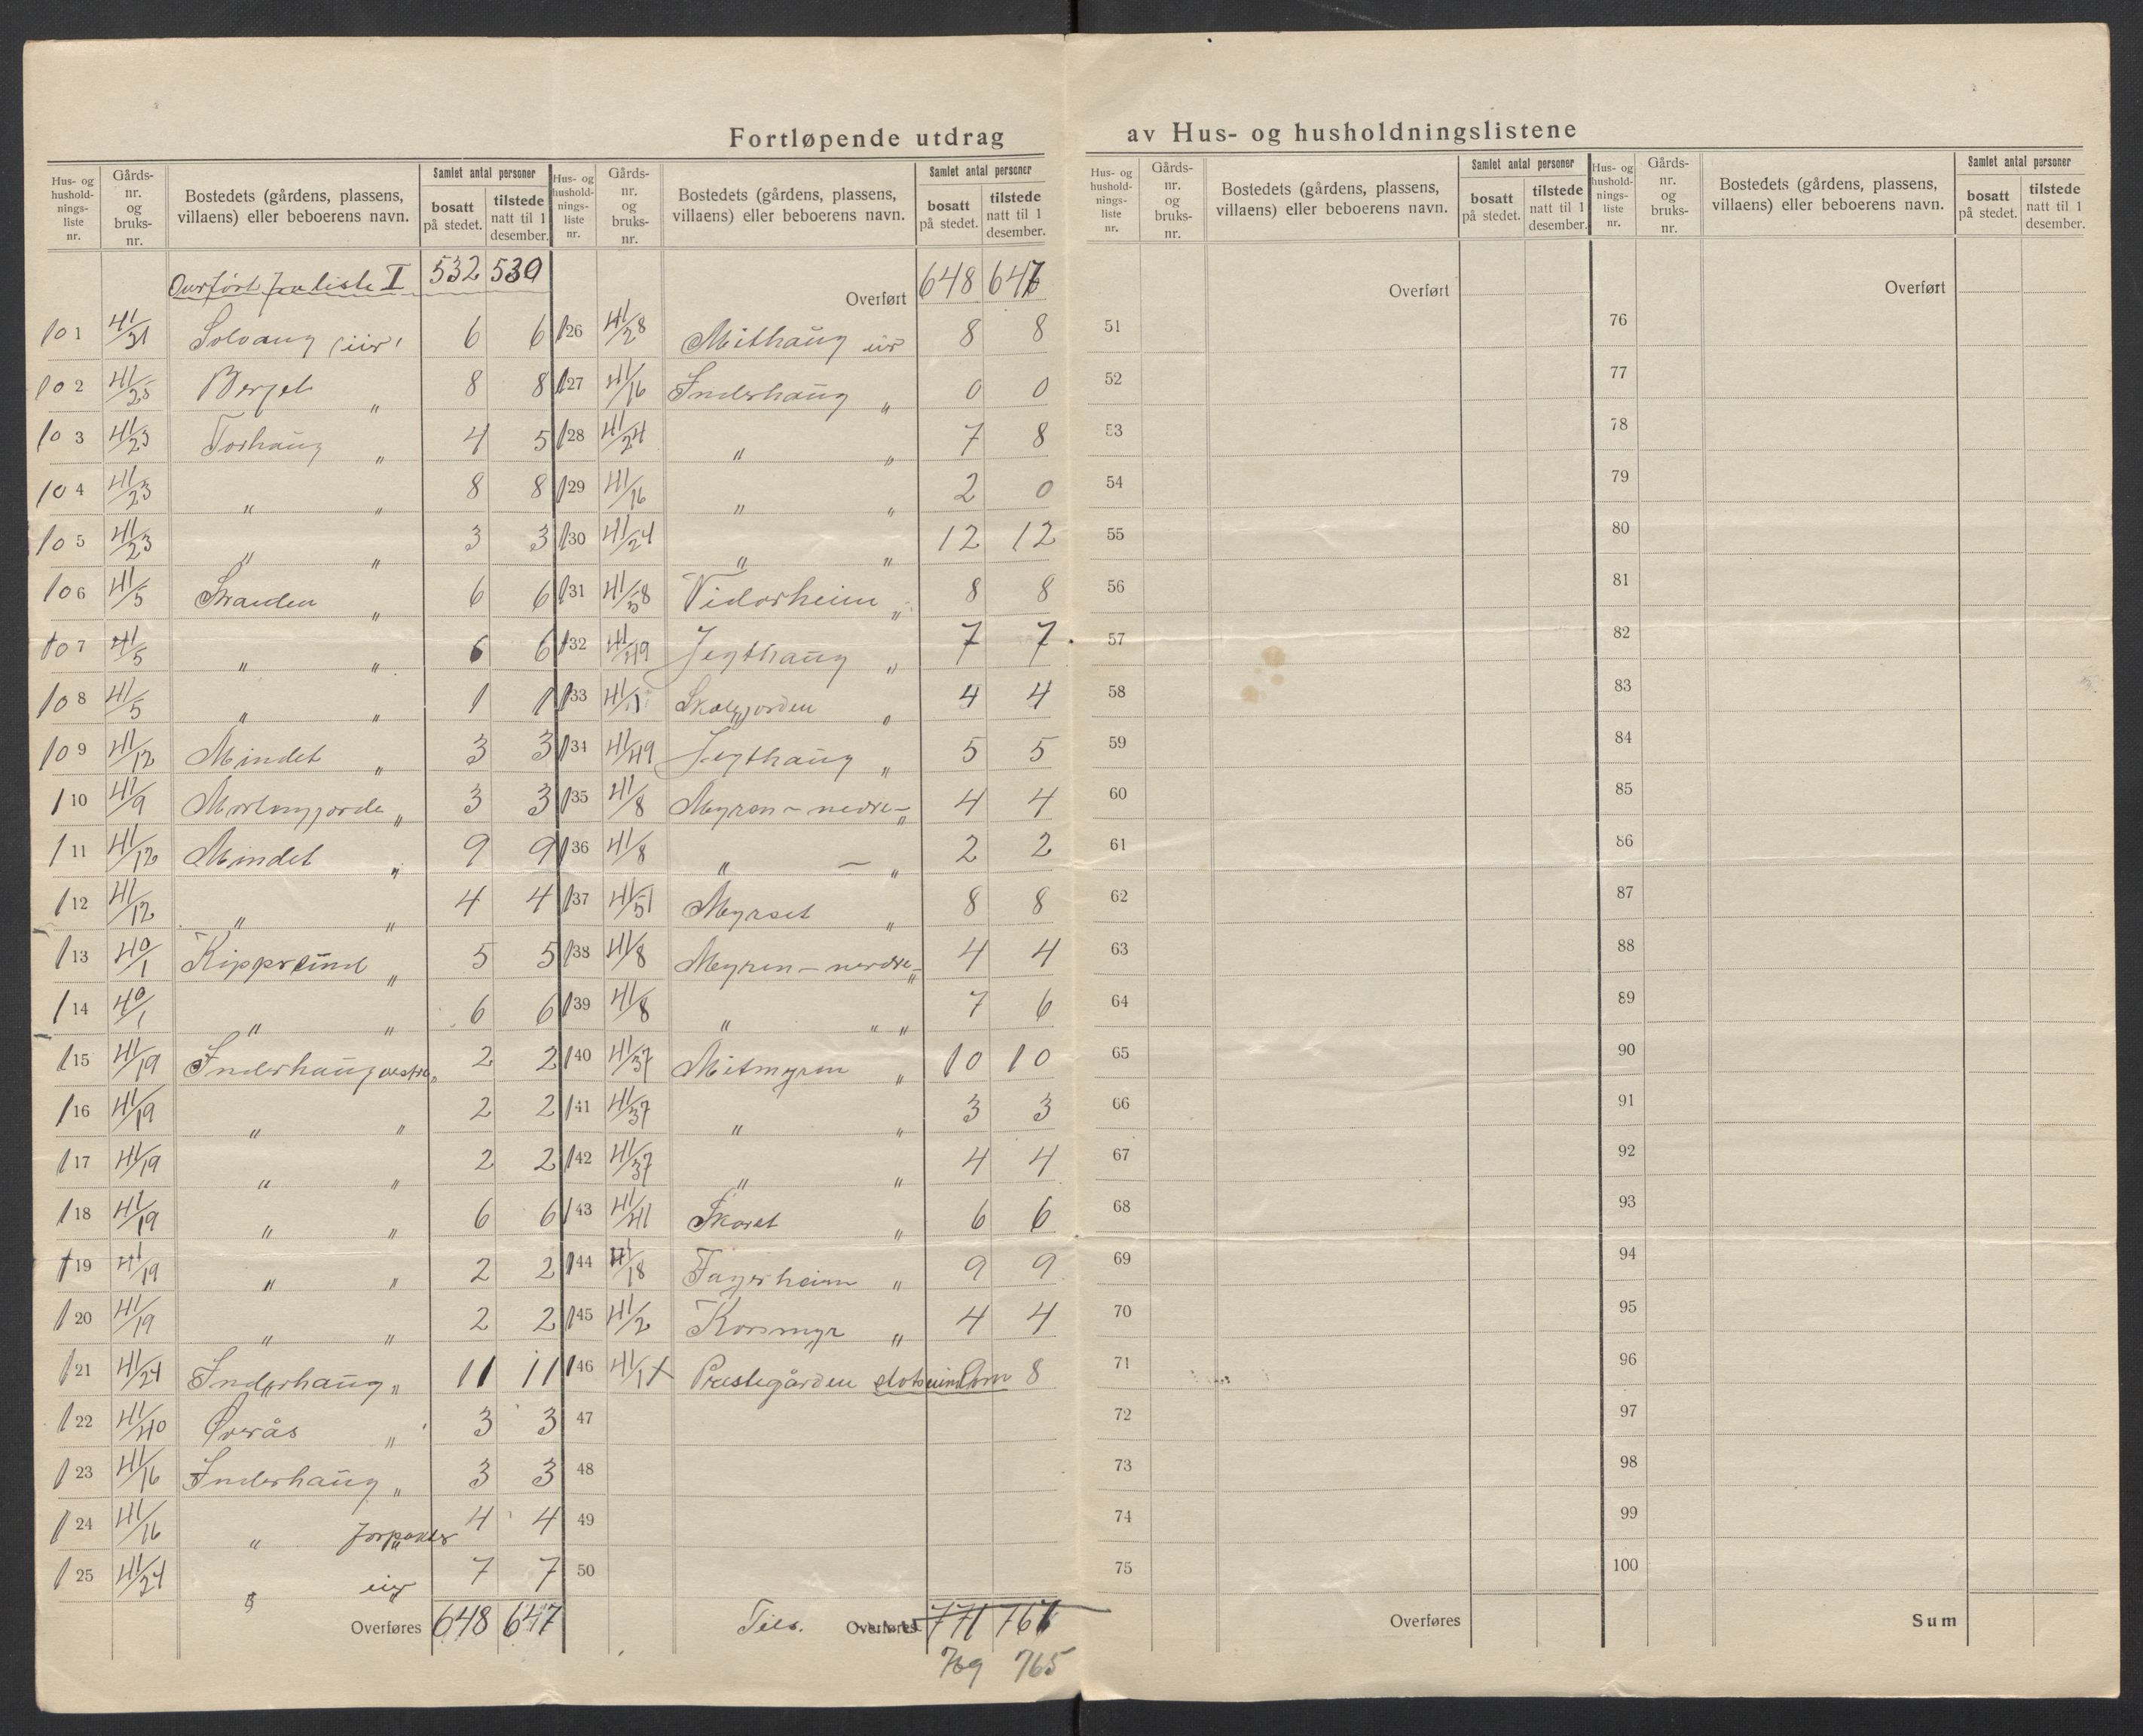 Fortløpende utdrag av Hus- og husholdningslistene
Hus- og husholdnings-liste nr. | Gårds-nr. og bruks-nr. | Bostedets (gårdens, plassens, villaens) eller beboerens navn. | Samlet antal personer | bosatt på stedet. | tilstede natt til 1 desember.
Overført fra liste I 532 530
101 41/31 Solvang (eier) 6 6
102 41/25 Berget " 8 8
103 41/23 Torhaug " 4 5
104 41/23 " " 8 8
105 41/23 " " 3 3
106 41/5 Stranden " 6 6
107 41/5 " " 6 6
108 41/5 " " 1 1
109 41/12 Mindet " 3 3
110 41/9 " 3 3
111 41/12 Mindet " 9 9
112 41/12 " " 4 4
113 40/1 " 5 5
114 40/1 " " 6 6
115 41/19 Inderhaug vestre " 2 2
116 41/19 " " 2 2
117 41/19 " " 2 2
118 41/19 " " 6 6
119 41/19 " " 2 2
120 41/19 " " 2 2
121 41/24 Inderhaug " 11 11
122 41/40 Overås " 3 3
123 41/16 Inderhaug " 3 3
124 41/16 " 4 4
125 41/24 " eier 7 7
Overføres 648 647
Hus- og husholdnings-liste nr. | Gårds-nr. og bruks-nr. | Bostedets (gårdens, plassens, villaens) eller beboerens navn. | Samlet antal personer | bosatt på stedet. | tilstede natt til 1 desember.
Overført 648 647
126 41/28 Mithaug eier 8 8
127 41/16 Inderhaug " 0 0
128 41/24 " " 7 8
129 41/16 " " 2 0
130 41/24 " " 12 12
131 41/58 Vidarheim " 8 8
132 41/49 Jegthaug " 7 7
133 Skolejorden " 4 4
134 41/49 Jegthaug " 5 5
135 41/8 Myren - nedre - " 4 4
136 41/8 " - " 2 2
137 41/51 Myrset " 8 8
138 41/8 Myren - nedre - " 4 4
139 41/8 " " " 7 6
140 41/37 Mitmyren " 10 10
141 41/37 " " 3 3
142 41/37 " " 4 4
143 41/41 Skaret " 6 6
144 41/18 Fagerheim " 9 9
145 41/2 Korsmyr " 4 4
146 Prestegården 8
47
48
49
50
Tils. Overføres 771 767
769 765
Hus- og husholdnings-liste nr. | Gårds-nr. og bruks-nr. | Bostedets (gårdens, plassens, villaens) eller beboerens navn. | Samlet antal personer | bosatt på stedet. | tilstede natt til 1 desember.
Overført
51
52
53
54
55
56
57
58
59
60
61
62
63
64
65
66
67
68
69
70
71
72
73
74
75
Overføres
Hus- og husholdnings-liste nr. | Gårds-nr. og bruks-nr. | Bostedets (gårdens, plassens, villaens) eller beboerens navn. | Samlet antal personer | bosatt på stedet. | tilstede natt til 1 desember.
Overført
76
77
78
79
80
81
82
83
84
85
86
87
88
89
90
91
92
93
94
95
96
97
98
99
100
Sum